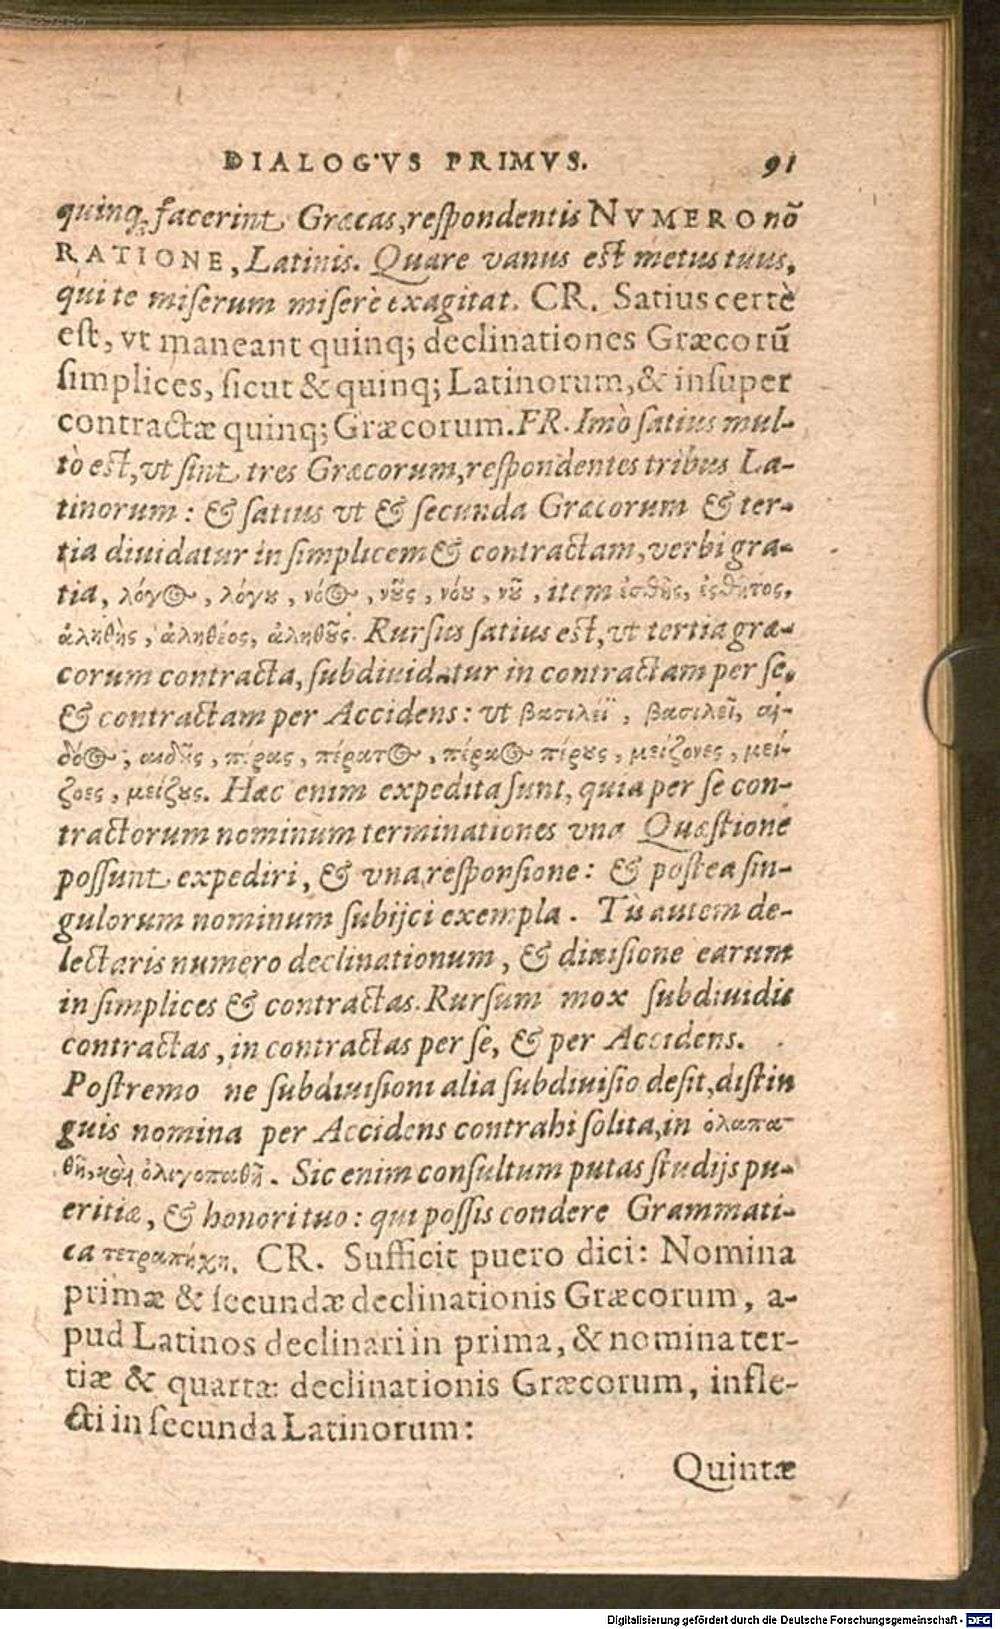 DIALOGVS PRIMVS. 91
quinq; facerint Græcas, respondentis NVMERO nō
RATIONE, Latinis. Quare vanus est metus tuus,
qui te miserum miserè exagitat. CR. Satius certè
est, vt maneant quinq; declinationes Græcorū
simplices, sicut & quinq; Latinorum, & insuper
contractæ quinq; Græcorum. FR. Imò satius mul-
tò est, vt sint tres Græcorum, respondentes tribus La-
tinorum: & satius vt & secunda Græcorum & ter-
tia diuidatur in simplicem & contractam, verbi gra-
tia, λόγος, λόγου, νόος, νοῦς, νόου, νοῦ, item ἐσθὴς, ἐσθῆτος,
ἀληθὴς, ἀληθέος, ἀληθοῦς. Rursus satius est, vt tertia græ-
corum contracta, subdiuidatur in contractam per se,
& contractam per Accidens: vt βασιλέϊ, βασιλεῖ, αἰ-
δόος, αιδοῦς, πέρας, πέρατος, πέραος πέρους, μείζονες, μεί-
ζοες, μείζους. Hæc enim expedita sunt, quia per se con-
tractorum nominum terminationes vna Quæstione
possunt expediri, & vna responsione: & postea sin-
gulorum nominum subijci exempla. Tù autem de-
lectaris numero declinationum, & diuisione earum
in simplices & contractas. Rursum mox subdiuidis
contractas, in contractas per se, & per Accidens.
Postremo ne subdiuisioni alia subdiuisio desit, distin
guis nomina per Accidens contrahi solita, in ὁλοπα-
θῆ, καὶ ὀλιγοπαθῆ. Sic enim consultum putas studijs pu-
eritiæ, & honori tuo: qui possis condere Grammati-
ca τετραπήχη. CR. Sufficit puero dici: Nomina
primæ & secundæ declinationis Græcorum, a-
pud Latinos declinari in prima, & nomina ter-
tiæ & quartæ declinationis Græcorum, infle-
cti in secunda Latinorum:
Quintæ
Digitalisierung gefördert durch die Deutsche Forschungsgemeinschaft - DFG